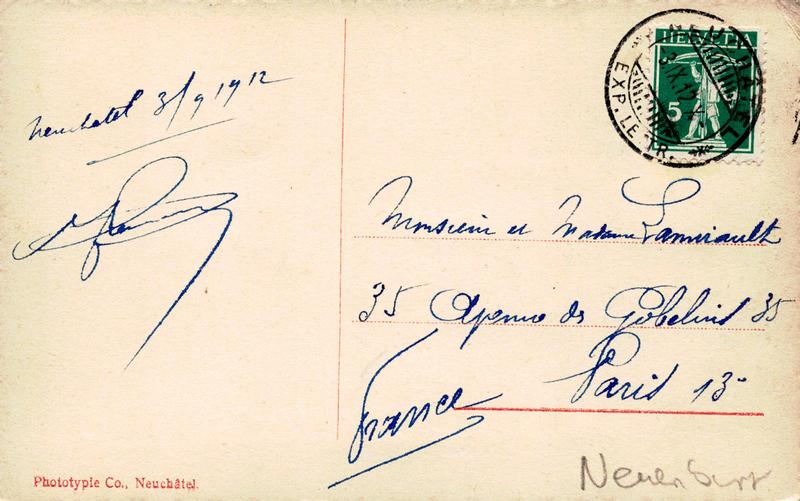 Neuchatel 3/9 1912
HELVETIA
NEUCHATEL
3.IX.12
EXP. LETTR.
5
Monsieur et Madame Lamirault
35 Avenue des Gobelins 35
Paris 13e
France
Phototypie Co., Neuchâtel.
Neuenburg